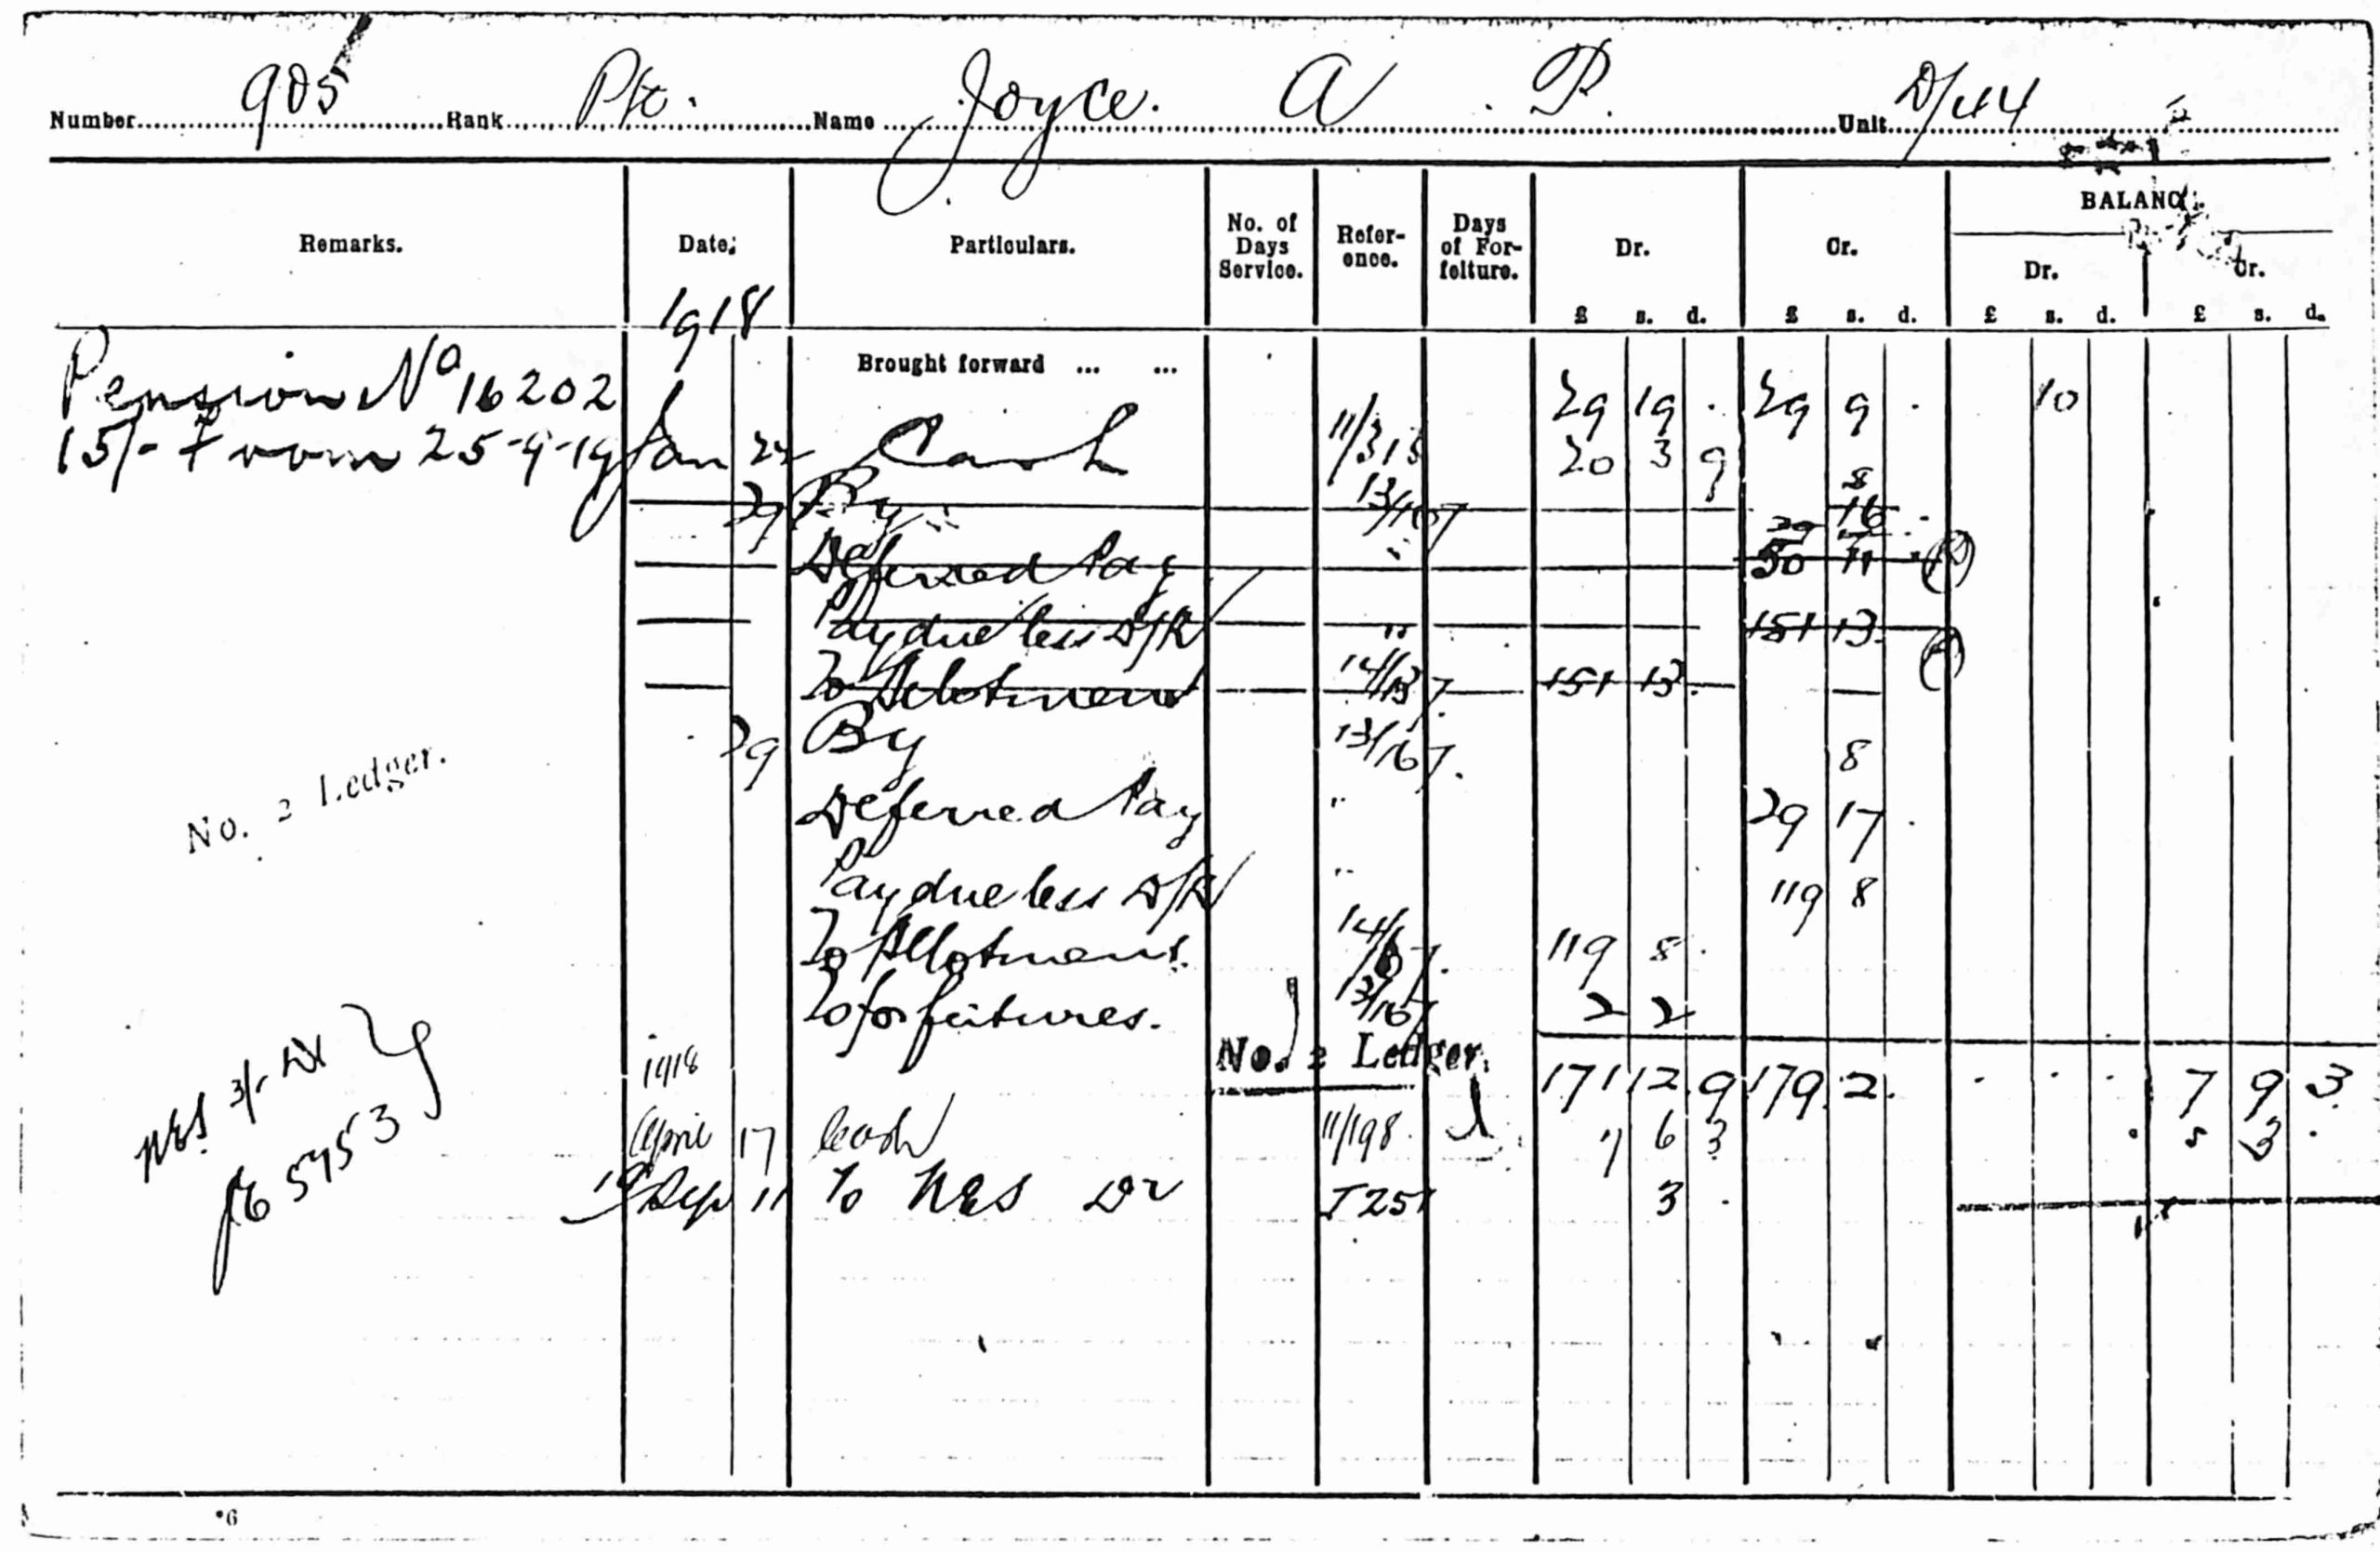 Number 905 Rank Pte. Name Joyce. A. P. Unit D/44
Remarks. Date. Particulars. No. of Days Service. Reference. Days of Forfeiture. Dr. Cr. BALANCE. Dr. Cr.
1918 £ s. d. £ s. d. £ s. d. £ s. d.
Brought forward ... ...
Pension No 16202 29 19 . 29 9 . 10
15/- from 25-9-19 Jan 22 Cash 11/313 20 3 9
29 By 13/167 8 16
Deferred Pay 50 11
Pay due less D/P " 151 13
To Allotment 151 13
29 By 13/167. 8
Deferred Pay " 29 17 .
No. 2 Ledger.
Pay due less D/P " 119 8
To Allotment. 119 8 .
To forfeitures. 13/167 2 2
No. 2 Ledger.
1918 171 12 9 179 2 . . . . 7 9 3
April 17 Cash 11/198 7 6 3 . 3 .
19 Sep 11 To NES Dr J251 3 .
NES 3/- Dr
56953
*6